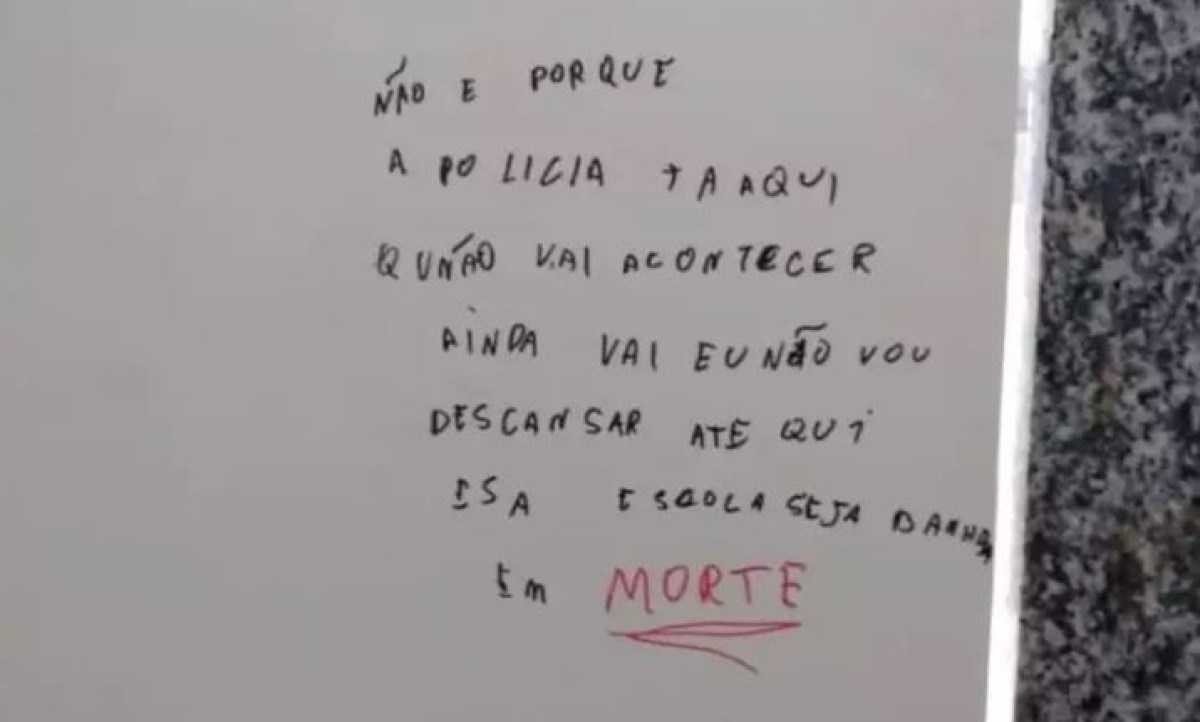 NÃO E PORQUE
A POLICIA TA AQUI
QUNÃO VAI ACONTECER
AINDA VAI EU NÃO VOU
DESCANSAR ATÉ QUI
ISA ESCOLA SEJA BANHADA
EM MORTE